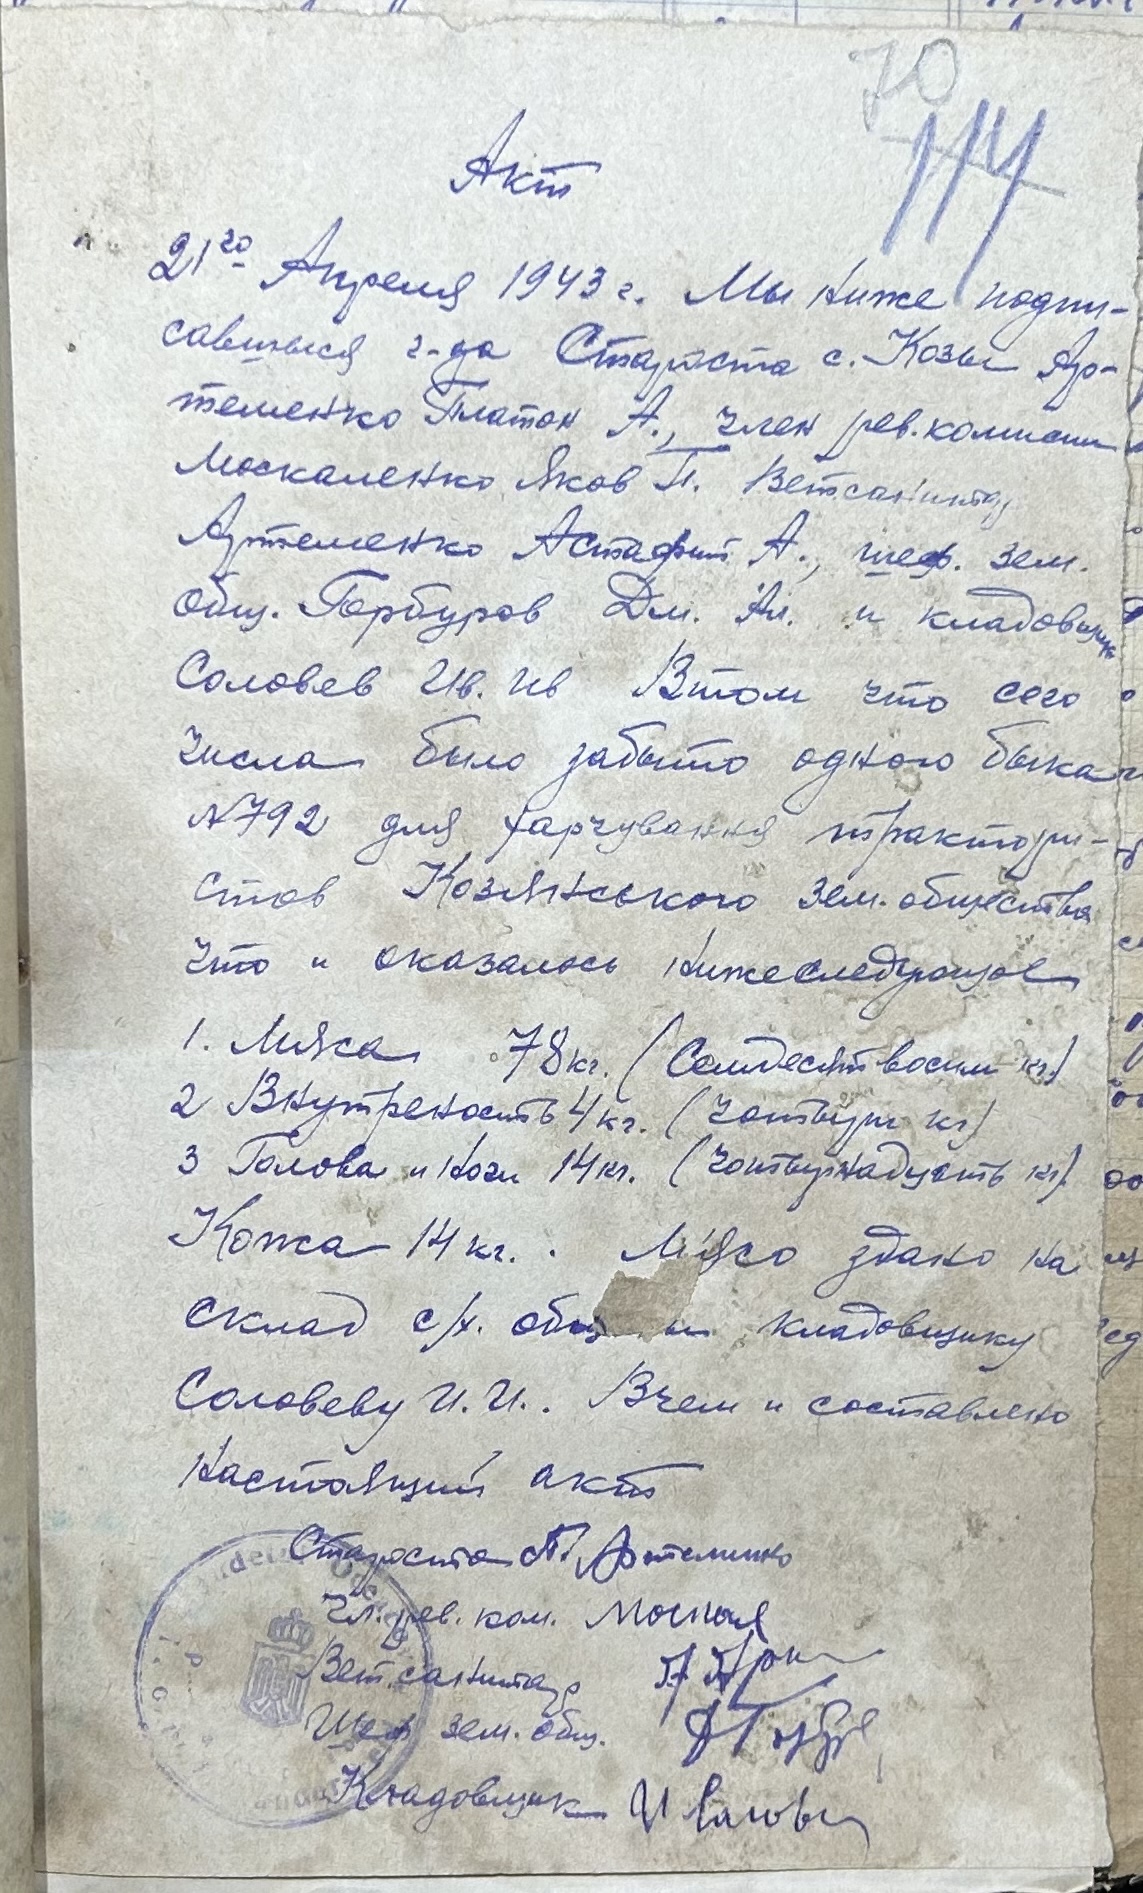 70
114
Акт
21го Апреля 1943 г. Мы ниже подпи-
савшыися г-да Староста с. Козы Ар-
теменко Платон А., член рев. комисии
Москаленко Яков П. Ветсанитар
Артеменко Астафий А., шеф. зем.
общ. Горбуров Дм. Ал. и кладовщик
Соловев Ив. Ив Втом что сего
числа было забыто одного быка
№792 для харчування трактори-
стов Козянського зем. общества
что и оказалось нижеследующое
1. Мняса 78 кг. (Семдесят восим кг.)
2 Внутреность 4 кг. (Чотыри кг)
3 Голова и ноги 14 кг. (Чотырнадцать кг)
Кожа 14 кг. Мясо здано на
склад с/х. общ кладовщику
Соловеву И. И.. Вчем и составлено
настоящий акт
Староста П. Артеменко
Чл. рев. ком.
Ветсанитар
Шеф зем. общ.
Кладовщик